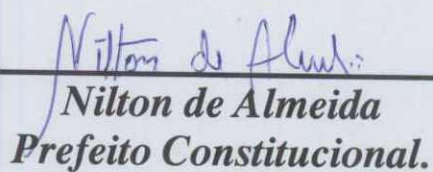 Nilton de Almeida
Nilton de Almeida
Prefeito Constitucional.